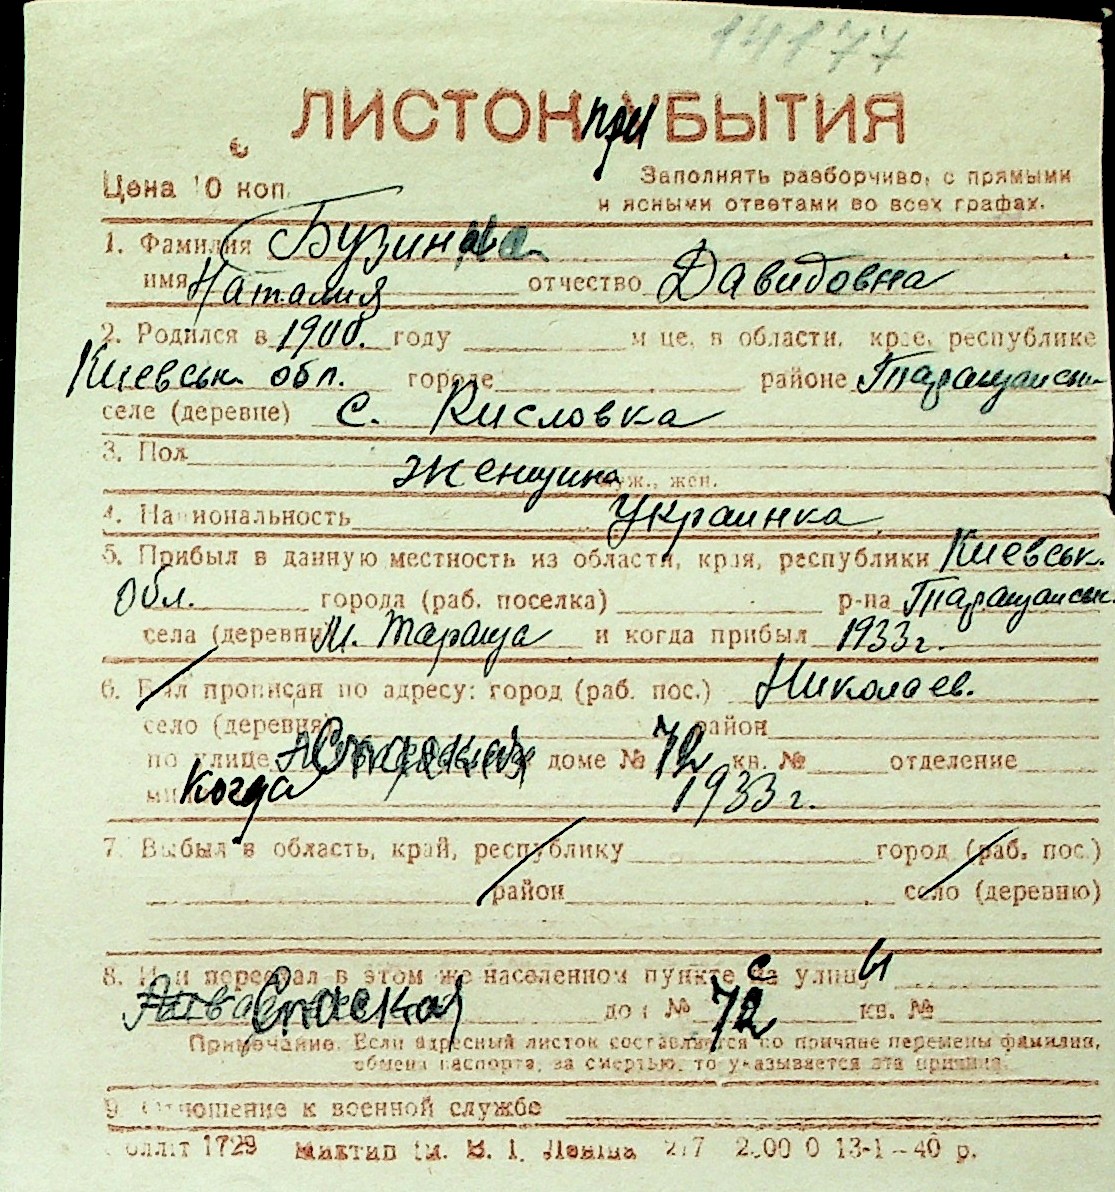 14177
ЛИСТОК при БЫТИЯ
Цена 10 коп.
Заполнять разборчиво, с прямыми
и ясными ответами во всех графах.
1. Фамилия Бузинна
имя Наталия отчество Давидовна
2. Родился в 1900. году м-це, в области, крае, республике
Киевськ. обл. городе районе Таращанськ
селе (деревне) с. Кисловка
3. Пол женщина
муж., жен.
4. Национальность Украинка
5. Прибыл в данную местность из области, края, республики Киевськ.
Обл. города (раб. поселка) р-на Таращанськ.
села (деревни) М. Тараща и когда прибыл 1933 г.
6. Был прописан по адресу: город (раб. пос.) Николаев.
село (деревня) район
по улице Спаская доме № 72 кв. № отделение
Когда 1933 г.
7. Выбыл в область, край, республику город (раб. пос.)
район село (деревню)
8. Или переехал в этом же населенном пункте с улицы
Спаская дом № 72 кв. №
Примечание. Если адресный листок составляется по причине перемены фамилии,
обмена паспорта, за смертью, то указывается эта причина.
9. Отношение к военной службе
1729 Миктип им. В. І. Леніна 13-1-40 р.